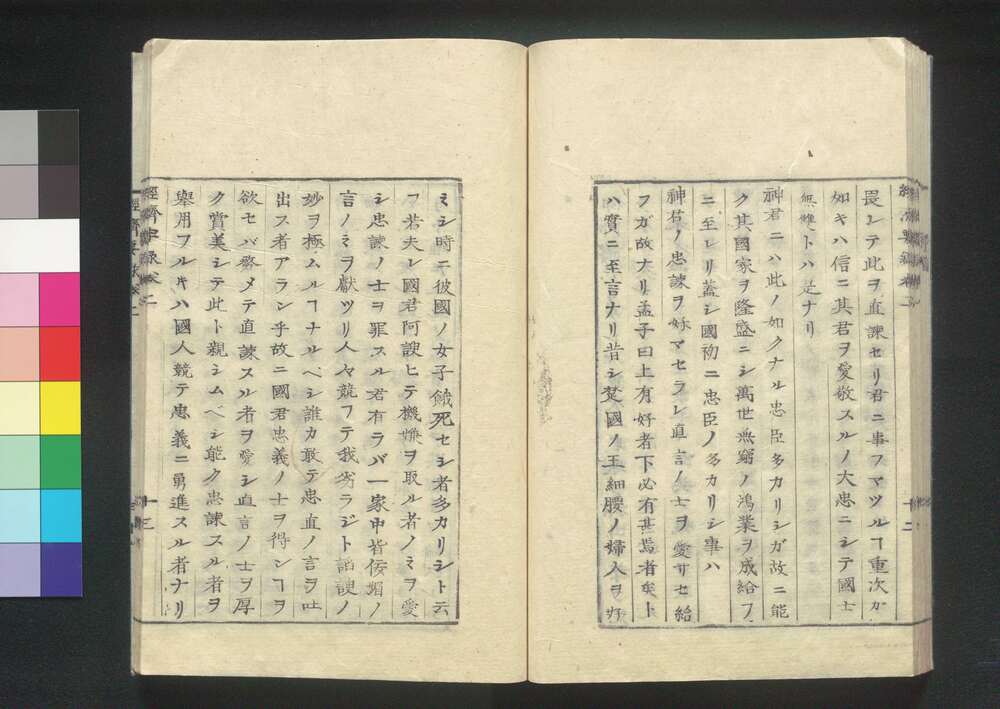 畏レテ此ヲ直諫セリ君ニ事フマツルヿ重次カ
如キハ信ニ其君ヲ愛敬スルノ大忠ニシテ國士
無雙トハ是ナリ
神君ニハ此ノ如クナル忠臣多カリシガ故ニ能
ク其國家ヲ隆盛ニシ萬世無窮ノ鴻業ヲ成給フ
ニ至レリ蓋シ國初ニ忠臣ノ多カリシ事ハ
神君ノ忠諫ヲ好マセラレ直言ノ士ヲ愛サセ給
フガ故ナリ孟子曰上有好者下必有甚焉者矣ト
ハ實ニ至言ナリ昔シ楚國ノ王細腰ノ婦人ヲ好
ミシ時ニ彼國ノ女子餓死セシ者多カリシト云
フ若夫レ國君阿諛ヒテ機嫌ヲ取ル者ノミヲ愛
シ忠諫ノ士ヲ罪スル君有ラバ一家中皆佞媚ノ
言ノミヲ獻ツリ人々競フテ我劣ラジト諂諛ノ
妙ヲ極ムルヿナルベシ誰カ敢テ忠直ノ言ヲ吐
出ス者アラン乎故ニ國君忠義ノ士ヲ得ンヿヲ
欲セバ務メテ直諫スル者ヲ愛シ直言ノ士ヲ厚
ク賞美シテ此ト親シムベシ能ク忠諫スル者ヲ
舉用フルキハ國人競テ忠義ニ勇進スル者ナリ
十二
十三